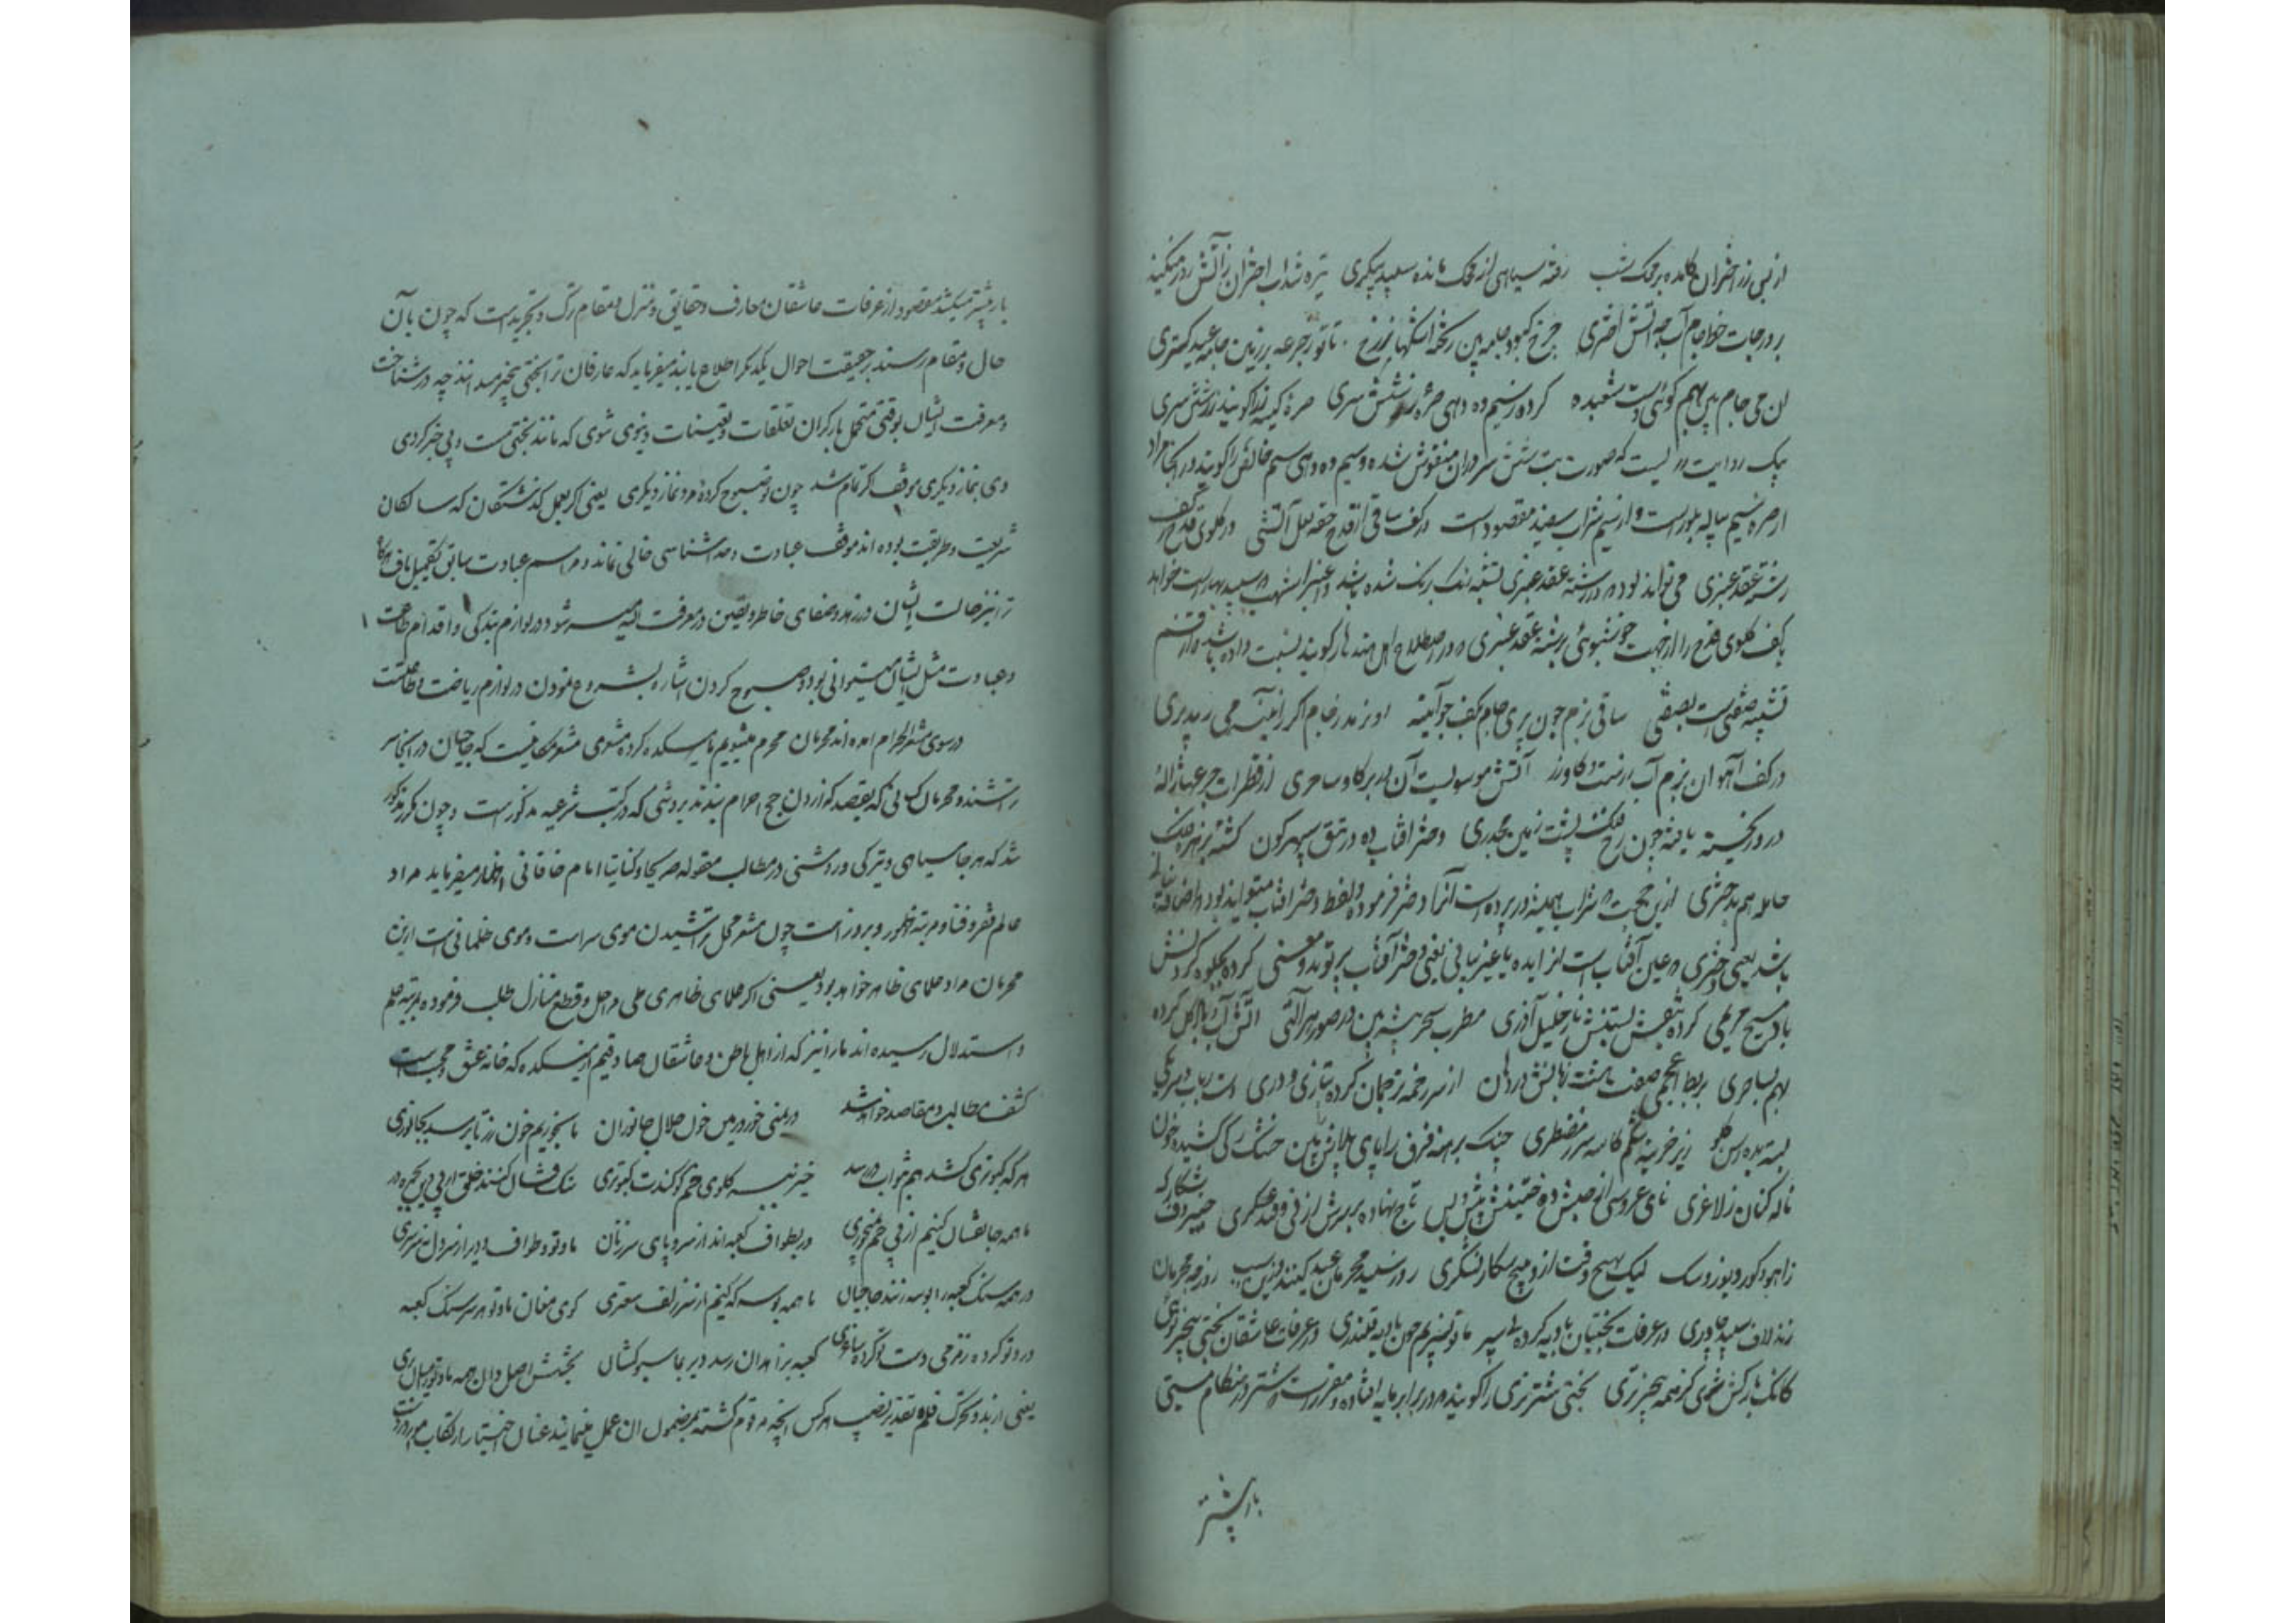 از پی زر اختران کامده بر محک شب رفته سیاهی از محک مانده سپید پیکری تیره شد آب اختران ز آتش روز میکند
بر درجات خط جام آب چو آتش اختری چرخ کبود جامه بین ریخته اشکها ز رخ تا تو ز جرعه بر زمین جامه عید گستری
ان می و جام بین بهم گوئی دست شعبده کرده ز سیم ده دهی صره زر شش سری صره کیسه را گویند زر شش سری
یک روایت زر لیست که صورت بت شش سر در ان منقوش شده و سیم ده دهی سیم خالص را گویند در اینجا مراد
از صره سیم پیاله بلور است و از سیم شراب سفید مقصود است در کف ساقی از قدح حقه لعل آتشی در گلوی قدح ز کف
رشته عقد عنبری می تواند بود در رشته عقد عنبری تشبه رنگ برنگ شده باشد و عنبر اشهب سپید بهار است خواهد
کف گلوی قدح را از جهت خوشبوئی برشته عقد عنبری در اصطلاح اهل هند هار گویند نسبت داده باشد و از قسم
تشبیه صفتی است بصفتی ساقی بزم چون پری جام بکف چو آینه او نرمد ز جام اگر ز آینه می رمد پری
در کف آهوان بزم آب رز است و گاو زر آتش موسویست آن در بر گاو سامری از قطرات جرعها ژاله
زرد ریخته یافته چون رخ فلک پشت زمین مجدری دختر آفتاب ده در تتق سپهرگون گشته بزهره فلک
حامله هم بدختری ازین جهت شراب همیشه در پرده است آنرا دختر فرموده و لفظ دختر آفتاب میتواند بود باضافه
باشد یعنی دختری عین آفتاب است از ایده یا غیر بیانی یعنی دختر آفتاب پرتو بد و معنی کرده بجلوه کردنش
باد مسیح مریمی کرده بنقش بستنش نار خلیل آذری مطرب سحر پیشه بین در صور هر آلتی آتش و آب و باد و گل کرده
بهم بساحری بربط اعجمی صفت هشت زبانش در دهان از سر زخمه ترجمان کرده بتازی و دری است رباب
بسته بده رسن گلو زیر خزینه شکم کاسه سر ز مضطری چنگ برهنه فرق را پای پلاس بین خشک رگی کشیده خون
ناله کنان ز لاغری نای عروسی از حبش ده ختنیش پیش و پس تاج نهاده بر سرش از نی و قند عسکری خنبر دف شکارگه
ز آهو و گور و یوز و سگ لیک بهیچ وقت از و هیچ شکار نشکری روز سپید محرمان عید کنند ازین سبب روز چو محرمان
زند لاف سپید چادری در عرفات بختیان بادیه کرده پی سپر ما و تو بسپریم چون بادیه قلندری در عرفات عاشقان بختی بیخبر توئی
کانک بارکش شوی کز همه بیخبرتری بختی شتر نری را گویند در برابر مایه افتاده و مقرر است شتر در هنگام مستی
بار پیشتر
بار پیشتر میکشد مقصود از عرفات عاشقان معارف و حقایق و منزل و مقام ترک و تجرید است که چون بآن
حال و مقام رسند بر حقیقت احوال یکدیگر اطلاع یابند میفرماید که عارفان ترا بختی بیخبر میدانند چه در شناخت
و معرفت ایشان بوقتی متحمل بارگران تعلقات و تعینات دنیوی شوی که مانند بختی مست و بی خبر گردی
دی بنماز دیگری موقف اگر تمام شد چون تو صبوح کرده مرد نماز دیگری یعنی اگر بعمل گذشتگان که سالکان
شریعت و طریقت بوده اند موقف عبادت و خدا شناسی خالی نماند و مراسم عبادت سابق بتکمیل یافت
ترا نیز حالت ایشان در زهد و صفای خاطر و یقین و معرفت الهی میسر شود و در لوازم بندگی و اقدام طاعت
و عبادت مثل ایشان میتوانی بود و صبوح کردن اشاره بشروع نمودن در لوازم ریاضت و طاعت است
در سوی مشعر الحرام آمده اند محرمان محرم میشویم ما میکده کرده مشعری مشعر مکانیست که حاجیان در آنجا سر
تراشند و محرمان کسانی که بقصد گزاردن حج احرام بندند بروشی که در کتب شرعیه مذکور است و چون مکرر مذکور
شد که هر جا سیاهی و تیرگی و روشنی در مطالب مقوله صریحا و کنایتا امام خاقانی اظهار میفرماید مراد
عالم فقر و فنا و مرتبه ظهور و بروز است چون مشعر محل تراشیدن موی سر است و موی ظلمانی است ازین
محرمان مراد علمای ظاهر خواهد بود یعنی اگر علمای ظاهری طی مراحل و قطع منازل طلب فرموده بمرتبه علم
و استدلال رسیده اند ما را نیز که از اهل باطن و عاشقان صادقیم از میکده که خانه عشق و محبت است
کشف مطالب و مقاصد خواهد شد در منی خورد زمین خون حلال جانوران ما بخوریم خون رز تا نرسد بجانوری
هر که کبوتری کشد هم ثواب در رسد خیز نیم سر گلوی خم کوکندت کبوتری سنگ فشان کنند خلق از پی دین جمره در
ما همه جانفشان کنیم از پی خم بمنخوری در بطواف کعبه اند از سر و پای سرزنان ما و تو و طواف دیر از سر دل نه سرسری
در همه سنگ کعبه را بوسه زنند حاجیان ما همه بوسه گه کنیم از سر زلف سعتری کوی مغان و ما و تو هر سر سنگ کعبه
در و تو کرده زمزمی دست تو کرده ساغری کعبه بزاهدان رسد دیر بما سبوکشان بخشش اصل دان همه ما و تو از میان بری
یعنی از بد و تحرک قلم تقدیر نصیب هر کس آنچه مرقوم گشته بر مضمون ان عمل مینمایند عنان اختیار ارتکاب